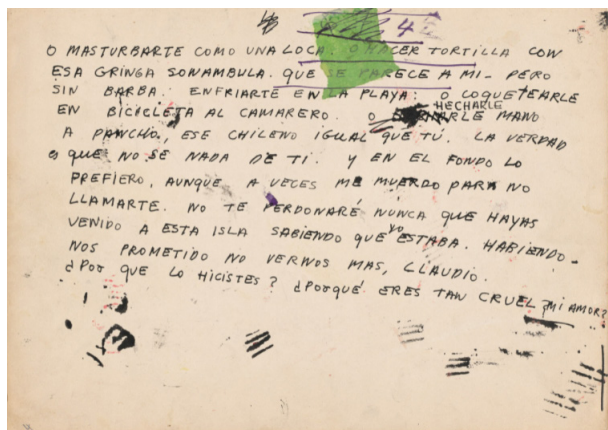 4
O MASTURBARTE COMO UNA LOCA. O HACER TORTILLA CON
ESA GRINGA SONAMBULA. QUE SE PARECE A MI- PERO
SIN BARBA. ENFRIARTE EN LA PLAYA: O COQUETEARLE
HECHARLE
EN BICICLETA AL CAMARERO. O MANO
A PANCHO, ESE CHILENO IGUAL QUE TÚ. LA VERDAD
es QUE NO SE NADA DE TI. Y EN EL FONDO LO
PREFIERO, AUNQUE A VECES ME MUERDO PARA NO
LLAMARTE. NO TE PERDONARÉ NUNCA QUE HAYAS
VENIDO A ESTA ISLA SABIENDO QUE yo ESTABA. HABIENDO-
NOS PROMETIDO NO VERNOS MAS, CLAUDIO.
¿POR QUE LO HICISTES? ¿PORQUÉ ERES TAN CRUEL MI AMOR?